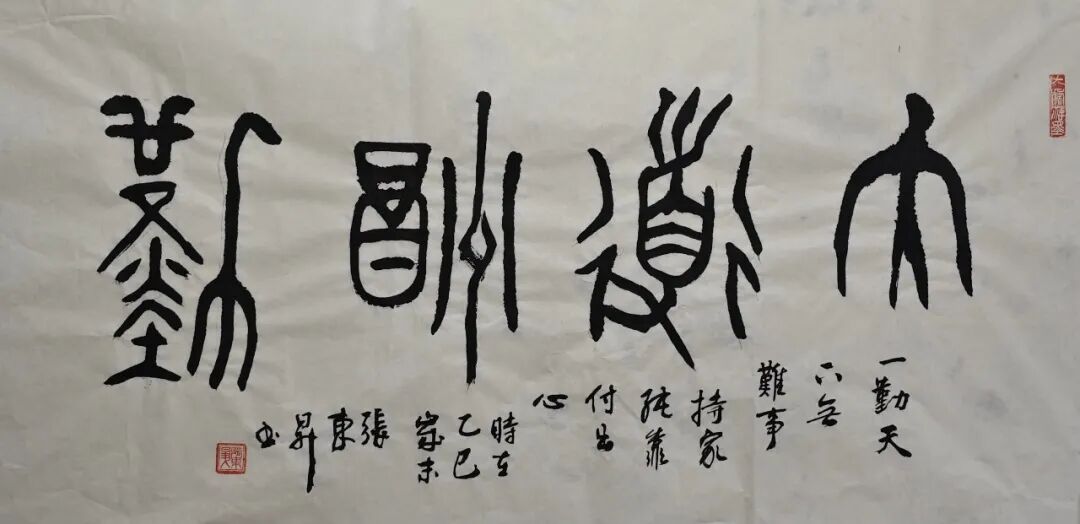 天道酬勤
一勤天
下無
難事
持家
純靠
付出
心
時在
乙巳
歲末
張
東
昇
书